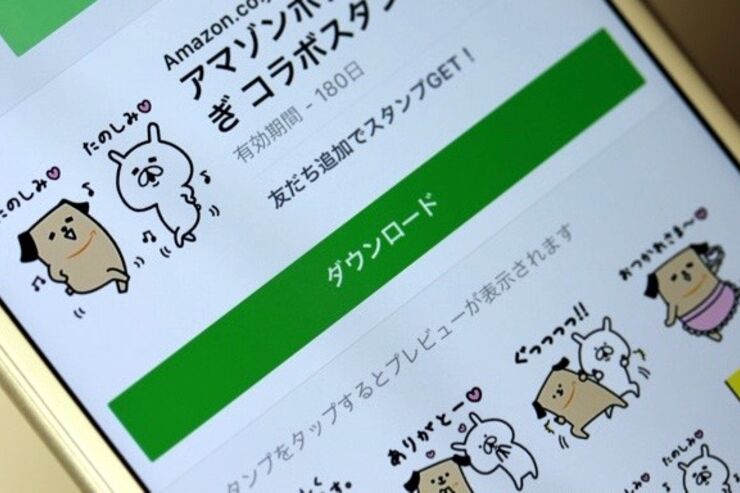 Amazon.co
アマゾンポ
ぎ コラボスタン
有効期間 - 180日
友だち追加でスタンプGET！
たのしみ
のしみ
ダウンロード
タンプをタップするとプレビューが表示されます
おつかれさま〜
ぐっっっっ!!
ありがとー
たのしみ
す。